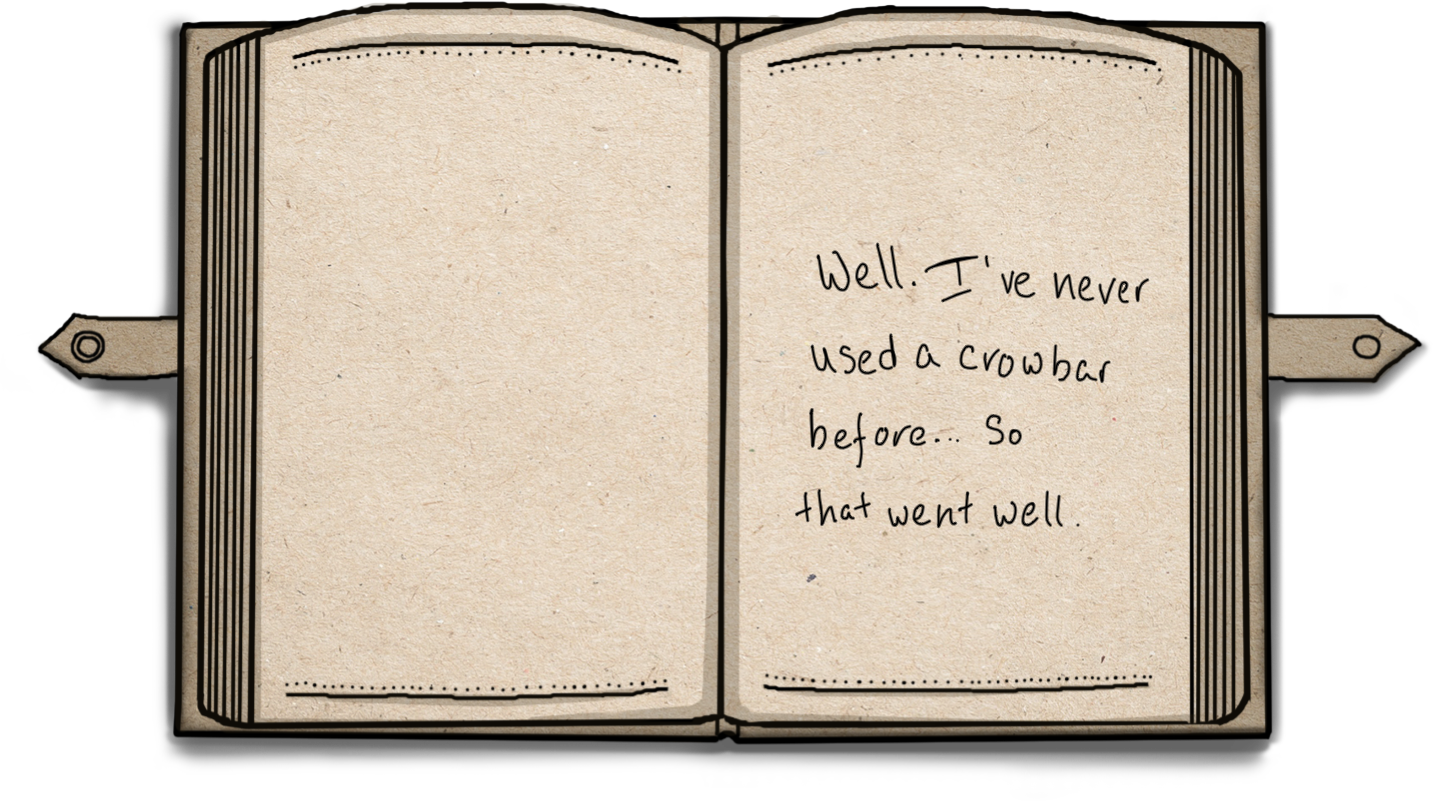 Well. I've never
used a crowbar
before... So
that went well.